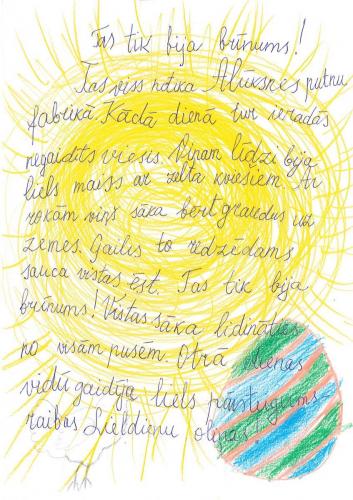 Tas tik bija brīnums!
Tas viss notika Alūksnes putnu
fabrikā. Kādā dienā tur ieradās
negaidīts viesis. Viņam līdzi bija
liels maiss ar zelta kviešiem. Ar
rokām viņš sāka bērt graudus uz
zemes. Gailis to redzēdams
sauca vistas ēst. Tas tik bija
brīnums! Vistas sāka lidināties
no visām pusēm. Otrā dienas
vidū gaidīja liels pārsteigums -
raibas Lieldienu olinas!